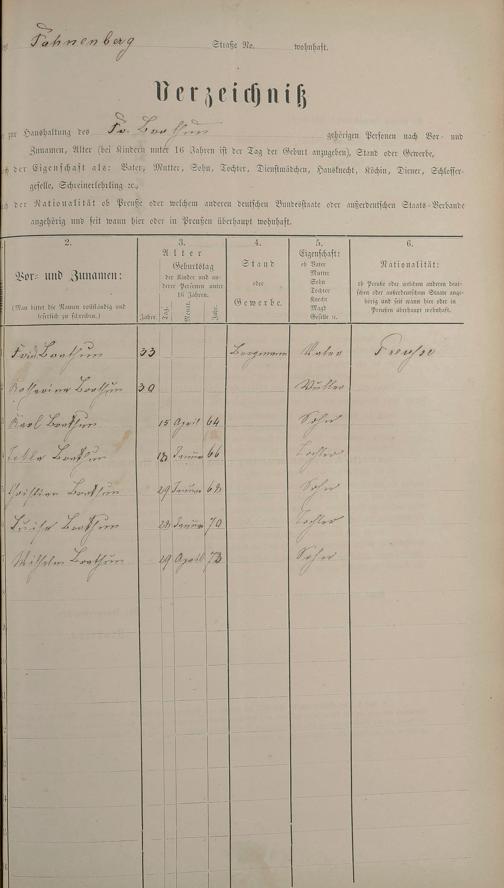 Fahnenberg Straße No. wohnhaft.
Verzeichniß
zur Haushaltung des Fr. gehörigen Personen nach Vor- und
Zunamen, Alter (bei Kindern unter 16 Jahren ist der Tag der Geburt anzugeben), Stand oder Gewerbe,
der Eigenschaft als: Vater, Mutter, Sohn, Tochter, Dienstmädchen, Hausknecht, Köchin, Diener, Schlosser-
geselle, Schreinerlehrling ꝛc.,
der Nationalität ob Preuße oder welchem anderen deutschen Bundesstaate oder außerdeutschen Staats-Verbande
angehörig und seit wann hier oder in Preußen überhaupt wohnhaft.
2. 3. 4. 5. 6.
Vor- und Zunamen:
(Man bittet die Namen vollständig und
leserlich zu schreiben.)
Alter
Geburtstag
der Kinder und an-
derer Personen unter
16 Jahren.
Jahre. Tag. Monat. Jahr.
Stand
oder
Gewerbe.
Eigenschaft:
ob Vater
Mutter
Sohn
Tochter
Knecht
Magd
Geselle u.
Nationalität:
ob Preuße oder welchem anderen deut-
schen oder außerdeutschen Staate ange-
hörig und seit wann hier oder in
Preußen überhaupt wohnhaft.
33 Bergmann Vater Preuße
Katharina 30 Mutter
Karl 15 April 64 Sohn
Januar 66 Tochter
Christian 29 Januar 68 Sohn
Luise 28 Januar 70 Tochter
Wilhelm 29 April 73 Sohn